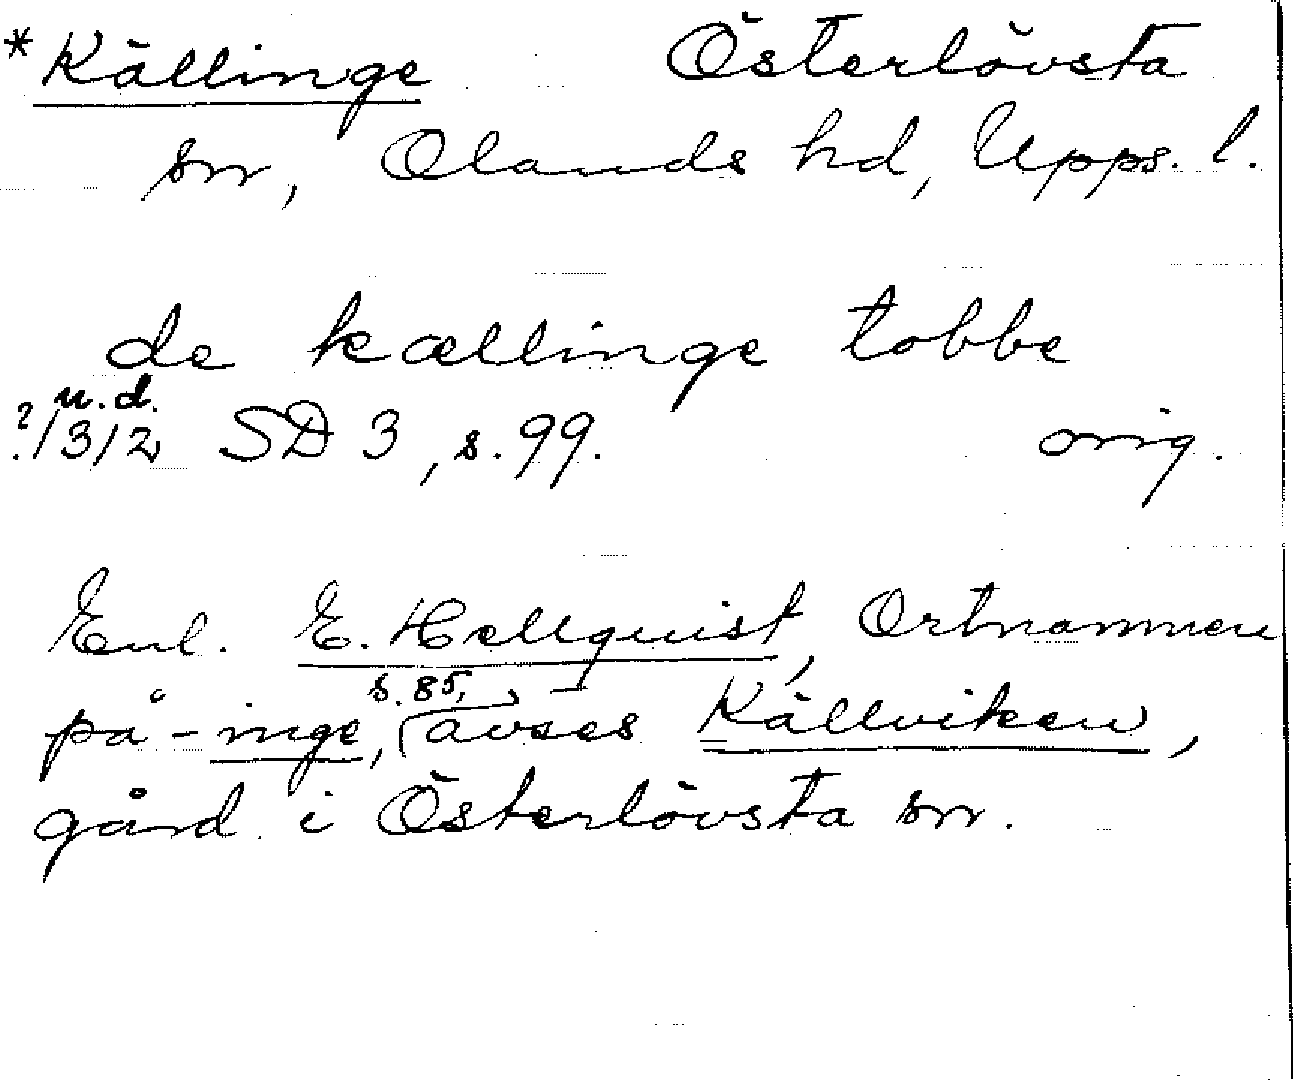 *Källinge Österlövsta
sn, Olands hd, Upps. l.
de kællinge tobbe
u.d.
?/1312 SD 3, s. 99. orig.
Enl. E. Hellquist, Ortnamnen
s. 85,
på -inge, avses Källviken,
gård i Österlövsta sn.